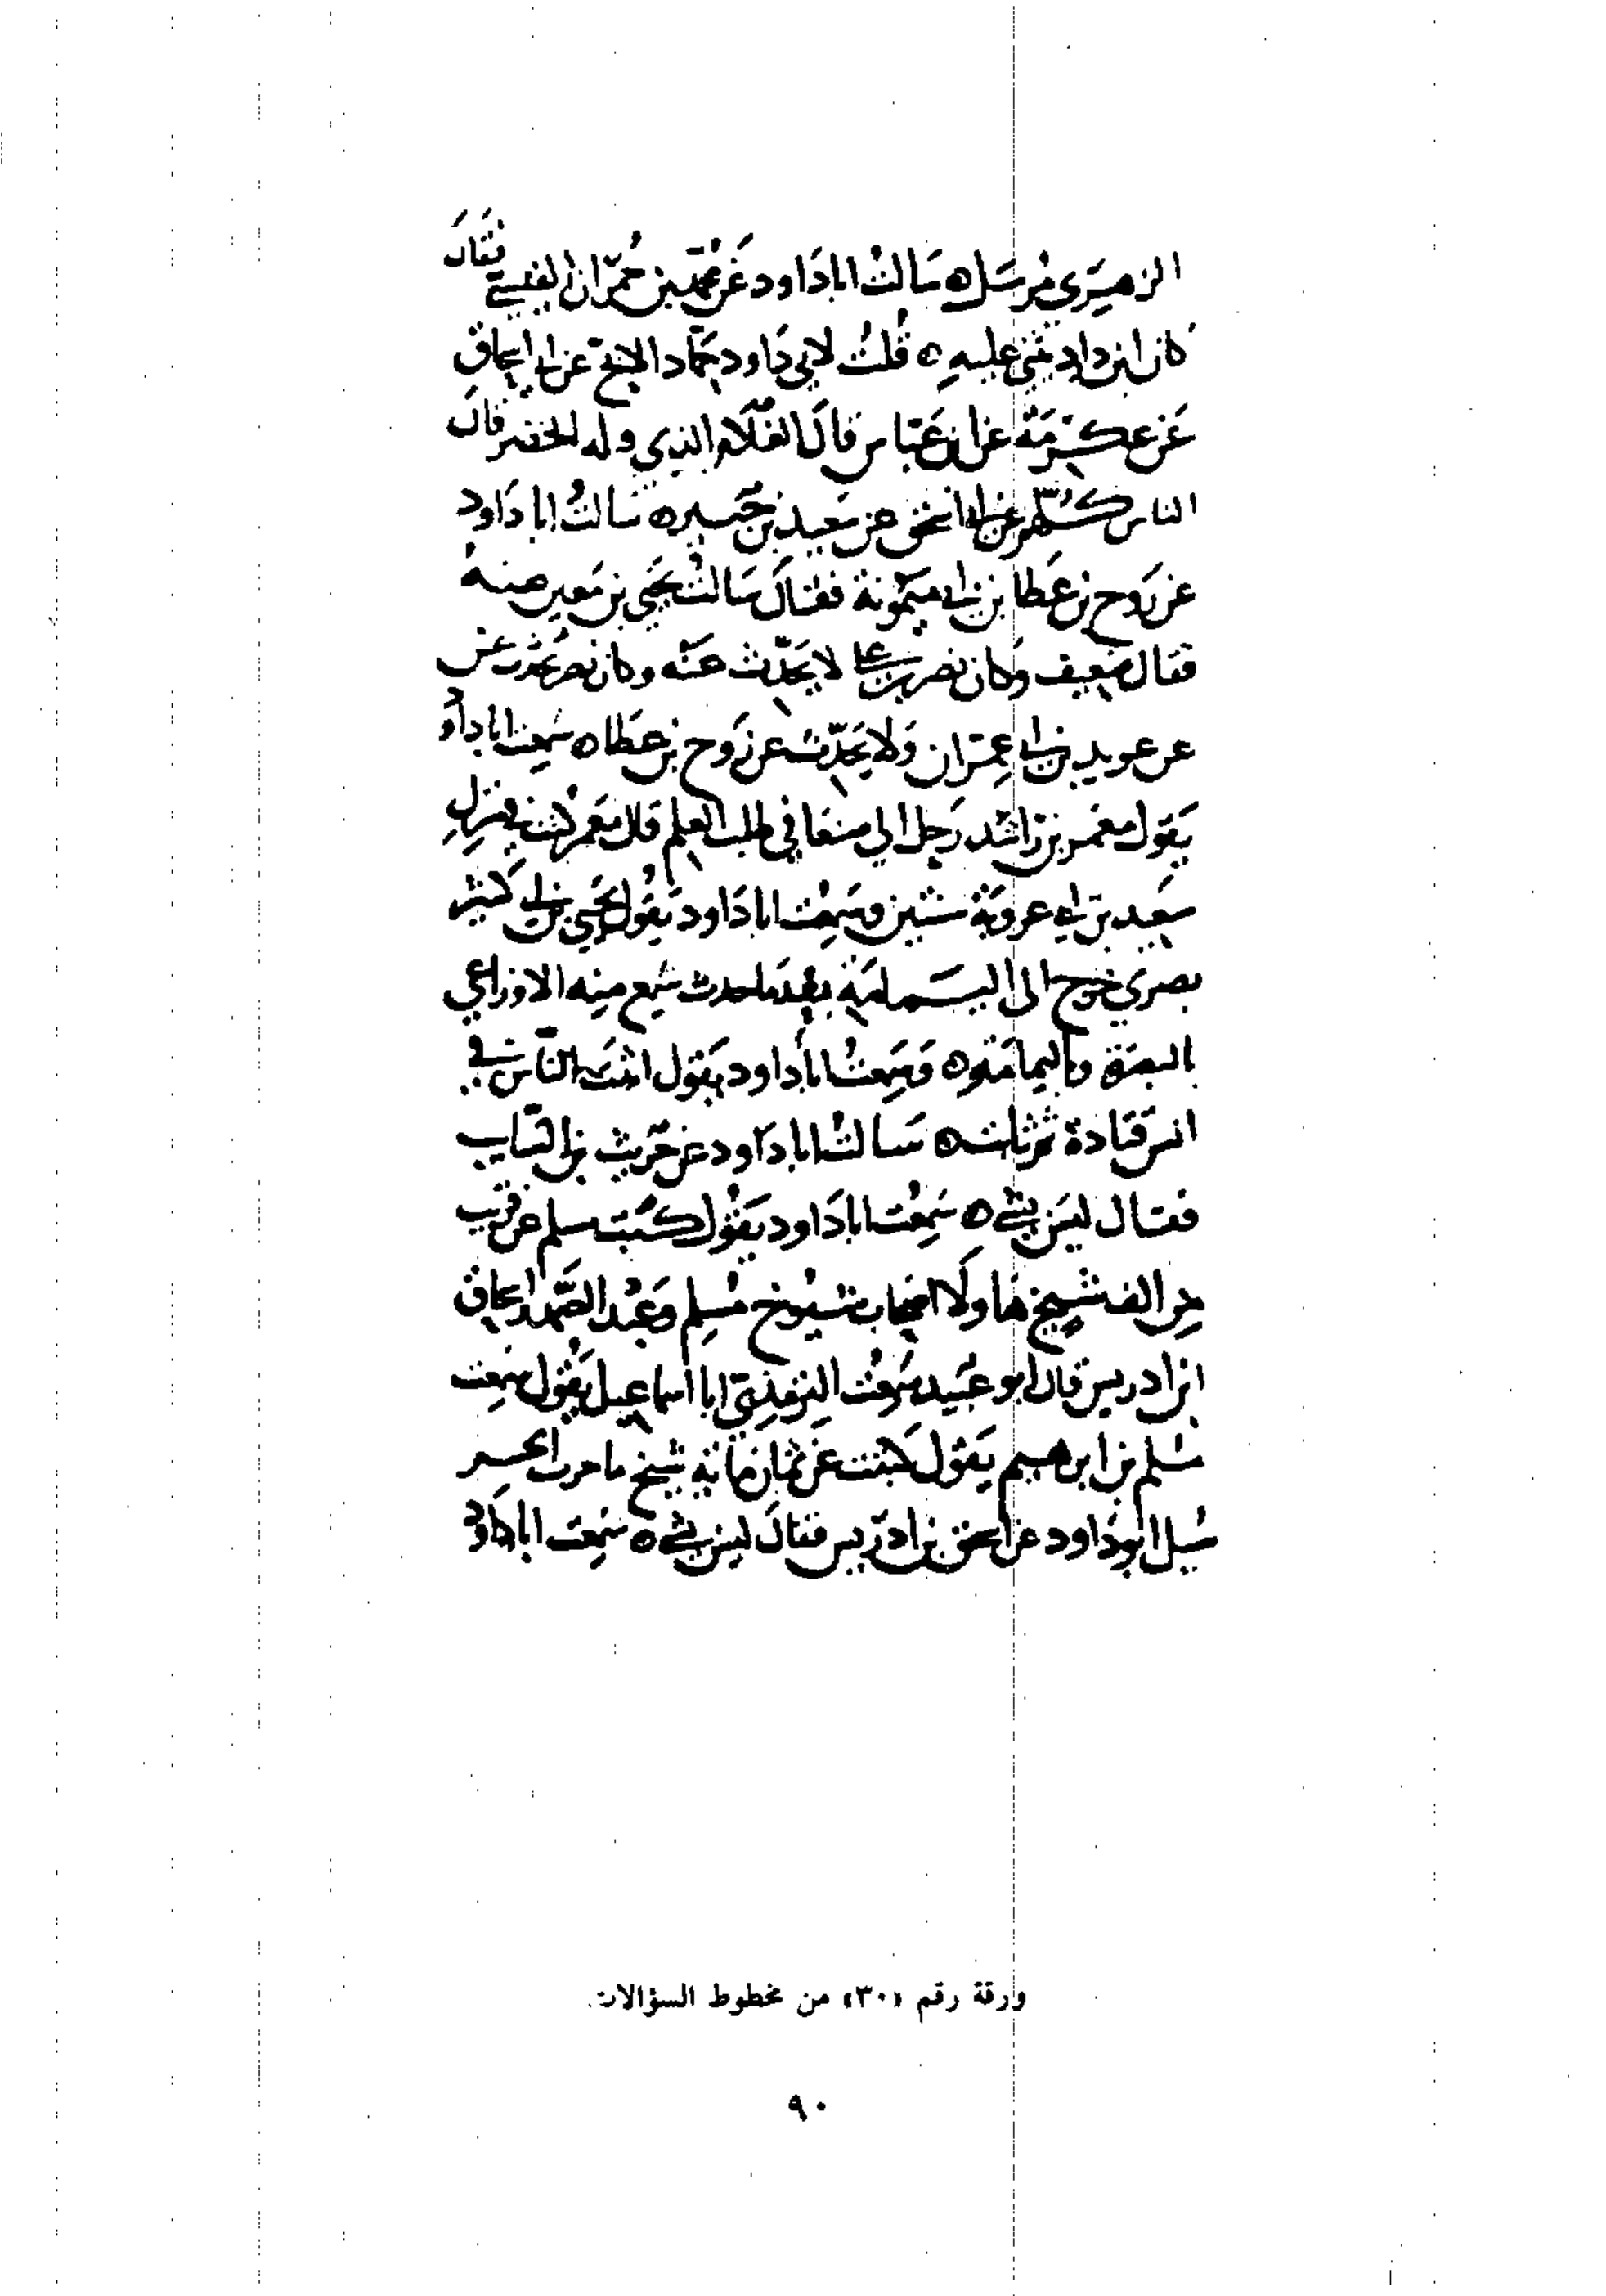 الزهري مرسل ه سَالتُ ابا دَاود عَن محمد بن حُمرَان القيسي فقالَ
كان ابن داود يثني عليهِ ه قُلتُ لابي دَاود حمّاد الابح عن ابي اسحاق
عَن عكرمَة عن ابن عَبّاس قالَ الغلام الذي قتله الخضر قالَ
الناس كلّهم عن ابي اسحق عن سَعيد بن جُبَير ه سَالتُ ابا دَاود
عن رَوح بن عَطا بن ابي ميمُونة فقالَ سَالتُ يحَيى بن مَعين عنهُ
فقال ضعيف وَكان نصر بن علي لا يحَدّث عنه وكان نصر يحدث عن
عن عوبد بن ابي عِمرَان وَلا يحَدّث عن رَوح بن عطا ه سَمِعت ابا داو
يَقول معمر بن رَاشد رَحل الى صنعا في طلب العلم قال مَعمر كنت في منزلِ
سَعيد بن ابي عروبَة سنتين وسَمِعتُ ابا دَاود يَقُول يحَيى بن ابي كثير
بصري خرج الى اليمامَة بعد ما حدث سَمع منه الاوزاعي
بالبصرَة وباليمامَة ه وَسَمِعتُ ابا داود يَقول اثبت الناس في
انس قتادة ثم ثابت ه سَالتُ ابا دَاود عن حُريث بن ابي السَّايب
فقال ليسَ بشي ه سَمِعت ابا دَاود يَقُول كتبَ مسلم عن قريب
من الف شيخ هَاولَا اصحاب شيُوخ مُسلِم وَعَبْد الصَّمد اسحاق
ابن ادريس قال ابو عبَيد سَمِعتُ الترمذِي ابا اسماعيل يَقُول سَمِعت
مُسلم بن ابرهيم يَقُول كتبت عَن ثمان مائة شيخ ما جزت الجسر
سُيل ابو دَاود عن اسحق بن ادريس فقالَ ليس بشي ه سَمِعت ابا دَاود
ورقة رقم «٣٠» من مخطوط السؤالات.
٩٠